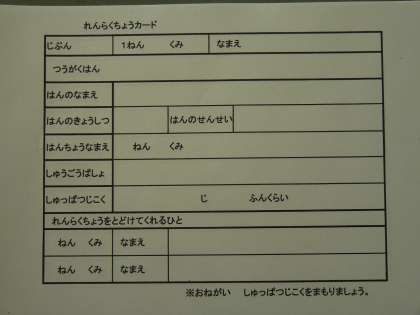 れんらくちょうカード
じぶん 1ねん くみ なまえ
つうがくはん
はんのなまえ
はんのきょうしつ はんのせんせい
はんちょうなまえ ねん くみ
しゅうごうばしょ
しゅっぱつじこく じ ふんくらい
れんらくちょうをとどけてくれるひと
ねん くみ なまえ
ねん くみ なまえ
※おねがい しゅっぱつじこくをまもりましょう。